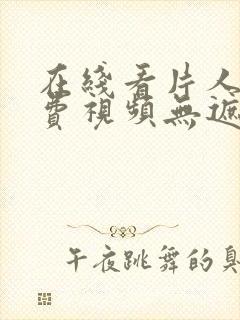 在綫看片人
費視頻無遮
午夜跳舞的臭